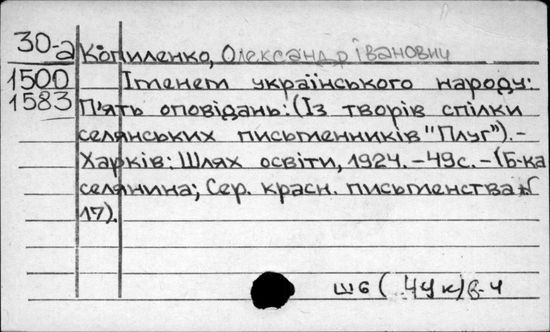 30-а Копиленко, Олександр Іванович
1500 Іменем українського народу:
1583 П'ять оповідань: (Із творів спілки
селянських письменників "Плуг").-
Харків: Шлях освіти, 1924. -49с. -(Б-ка
селянина; Сер. красн. письменства №
17).
Ш6( 4Ук)6-4